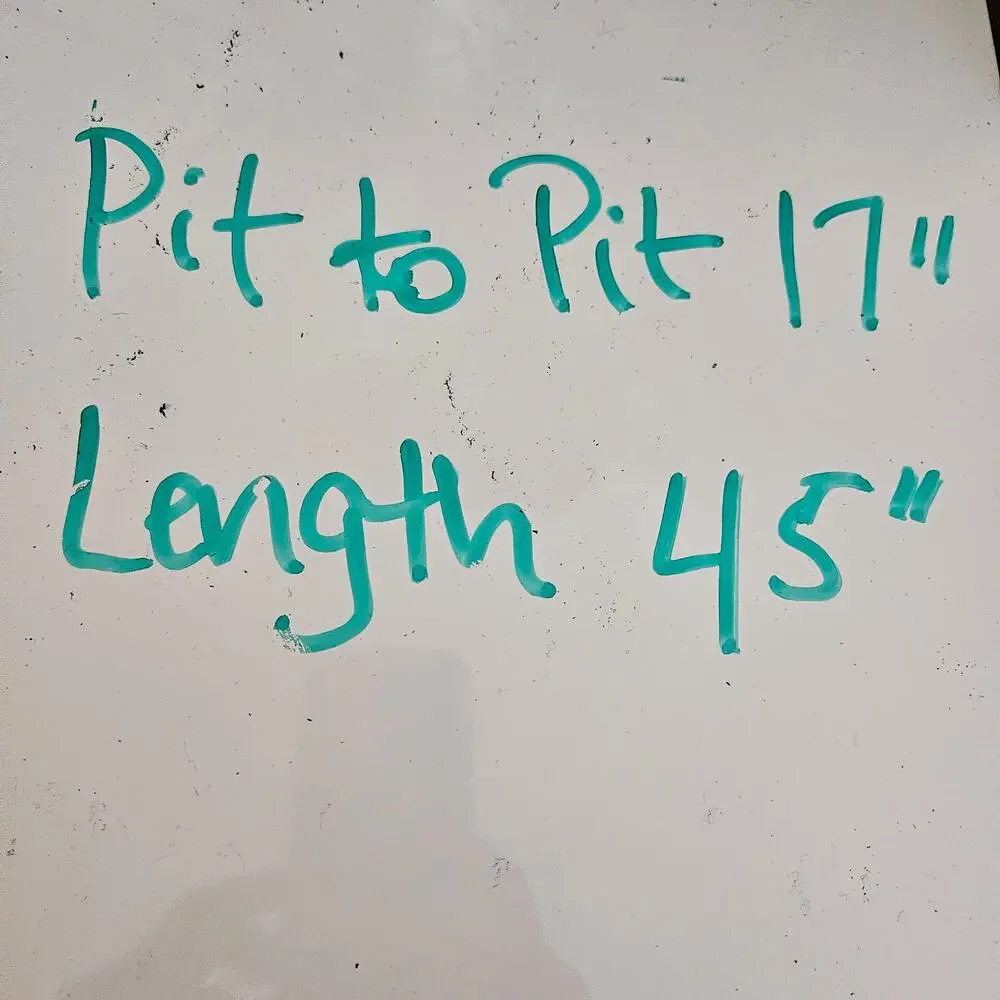 Pit to Pit 17"
Length 45"